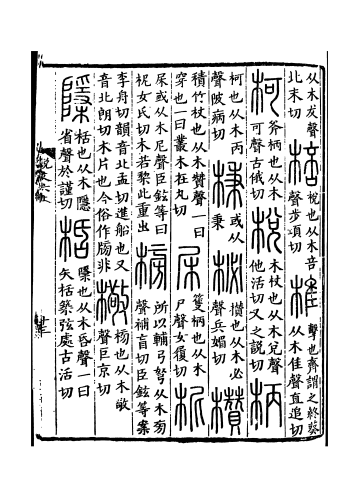 从木犮聲北末切 棓 梲也从木咅聲步項切 椎 擊也齊謂之終葵从木隹聲直追切
柯 斧柄也从木可聲古俄切 梲 木杖也从木兌聲他活切又之說切 柄
柯也从木丙聲陂病切 棅 或从秉 柲 欑也从木必聲兵媚切 欑
積竹杖也从木贊聲一曰穿也一曰叢木在丸切 杘 籆柄也从木尸聲女履切 柅
杘或从木尼聲臣鉉等曰柅女氏切木若棃此重出 榜 所以輔弓弩从木旁聲補盲切臣鉉等案
李舟切韻音北孟切進船也又音北朗切木片也今俗作牓非 橄 榜也从木敬聲巨京切
檃 栝也从木隱省聲於謹切 桰 檃也从木昏聲一曰矢栝築弦處古活切